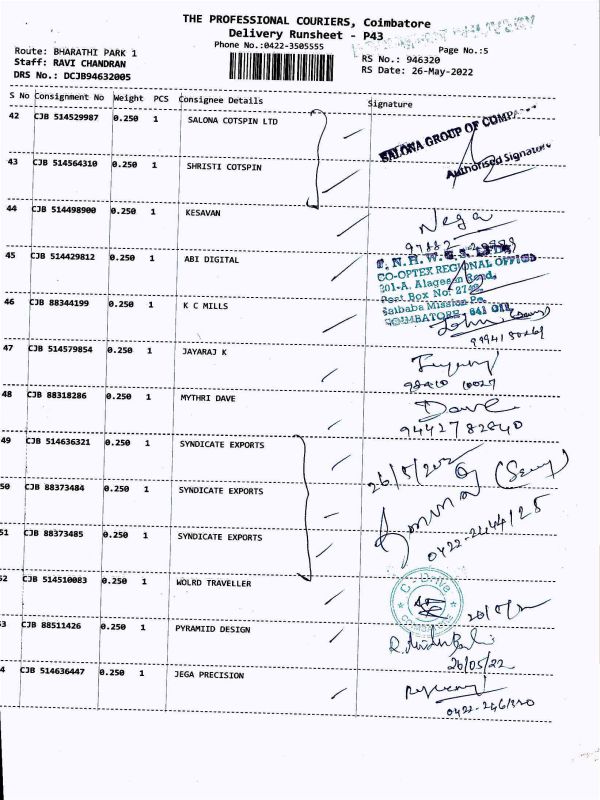 THE PROFESSIONAL COURIERS, Coimbatore
Delivery Runsheet - P43
Phone No.:0422-3505555
Page No.:5
Route: BHARATHI PARK 1
Staff: RAVI CHANDRAN
DRS No.: DCJB94632005
RS No.: 946320
RS Date: 26-May-2022
S No Consignment No Weight PCS Consignee Details Signature
42 CJB 514529987 0.250 1 SALONA COTSPIN LTD
SALONA GROUP OF
Authorised Signatory
43 CJB 514564310 0.250 1 SHRISTI COTSPIN
44 CJB 514498900 0.250 1 KESAVAN
Nega
45 CJB 514429812 0.250 1 ABI DIGITAL
CO-OPTEX REGIONAL OFFICE
201-A, Alagesan Road,
Post Box No. 2742,
Saibaba Mission Po.
COIMBATORE - 641 011
46 CJB 88344199 0.250 1 K C MILLS
47 CJB 514579854 0.250 1 JAYARAJ K
48 CJB 88318286 0.250 1 MYTHRI DAVE
Dave
9442782840
49 CJB 514636321 0.250 1 SYNDICATE EXPORTS
50 CJB 88373484 0.250 1 SYNDICATE EXPORTS
51 CJB 88373485 0.250 1 SYNDICATE EXPORTS
52 CJB 514510083 0.250 1 WOLRD TRAVELLER
C - Drive
53 CJB 88511426 0.250 1 PYRAMIID DESIGN
26/05/22
54 CJB 514636447 0.250 1 JEGA PRECISION